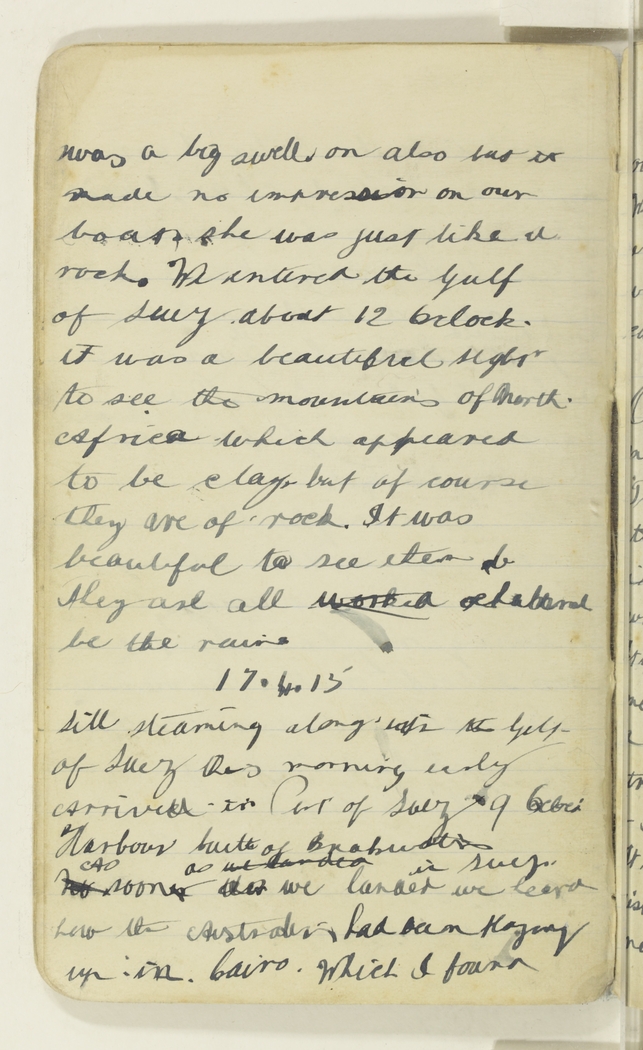 was a big swell on also but it
made no impression on our
boat, she was just like a
rock. We entered the Gulf
of Suez about 12 Oclock.
it was a beautiful sight
to see the mountains of North
Africa which appeared
to be clay but of course
they are of rock. It was
beautiful to see them
They are all worked shattered
be the rains
17. 4. 15
Still steaming along in the Gulf
of Suez this morning early
arrived in Port of Suez 9 Oclock
Harbour built of Breakwaters
as we landed in Suez.
As soon as we landed we heard
how the Australians had been Kazing
up in. Cairo. Which I found